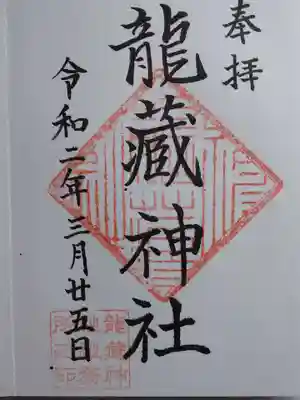 奉拝
龍蔵神社
令和二年三月廿五日